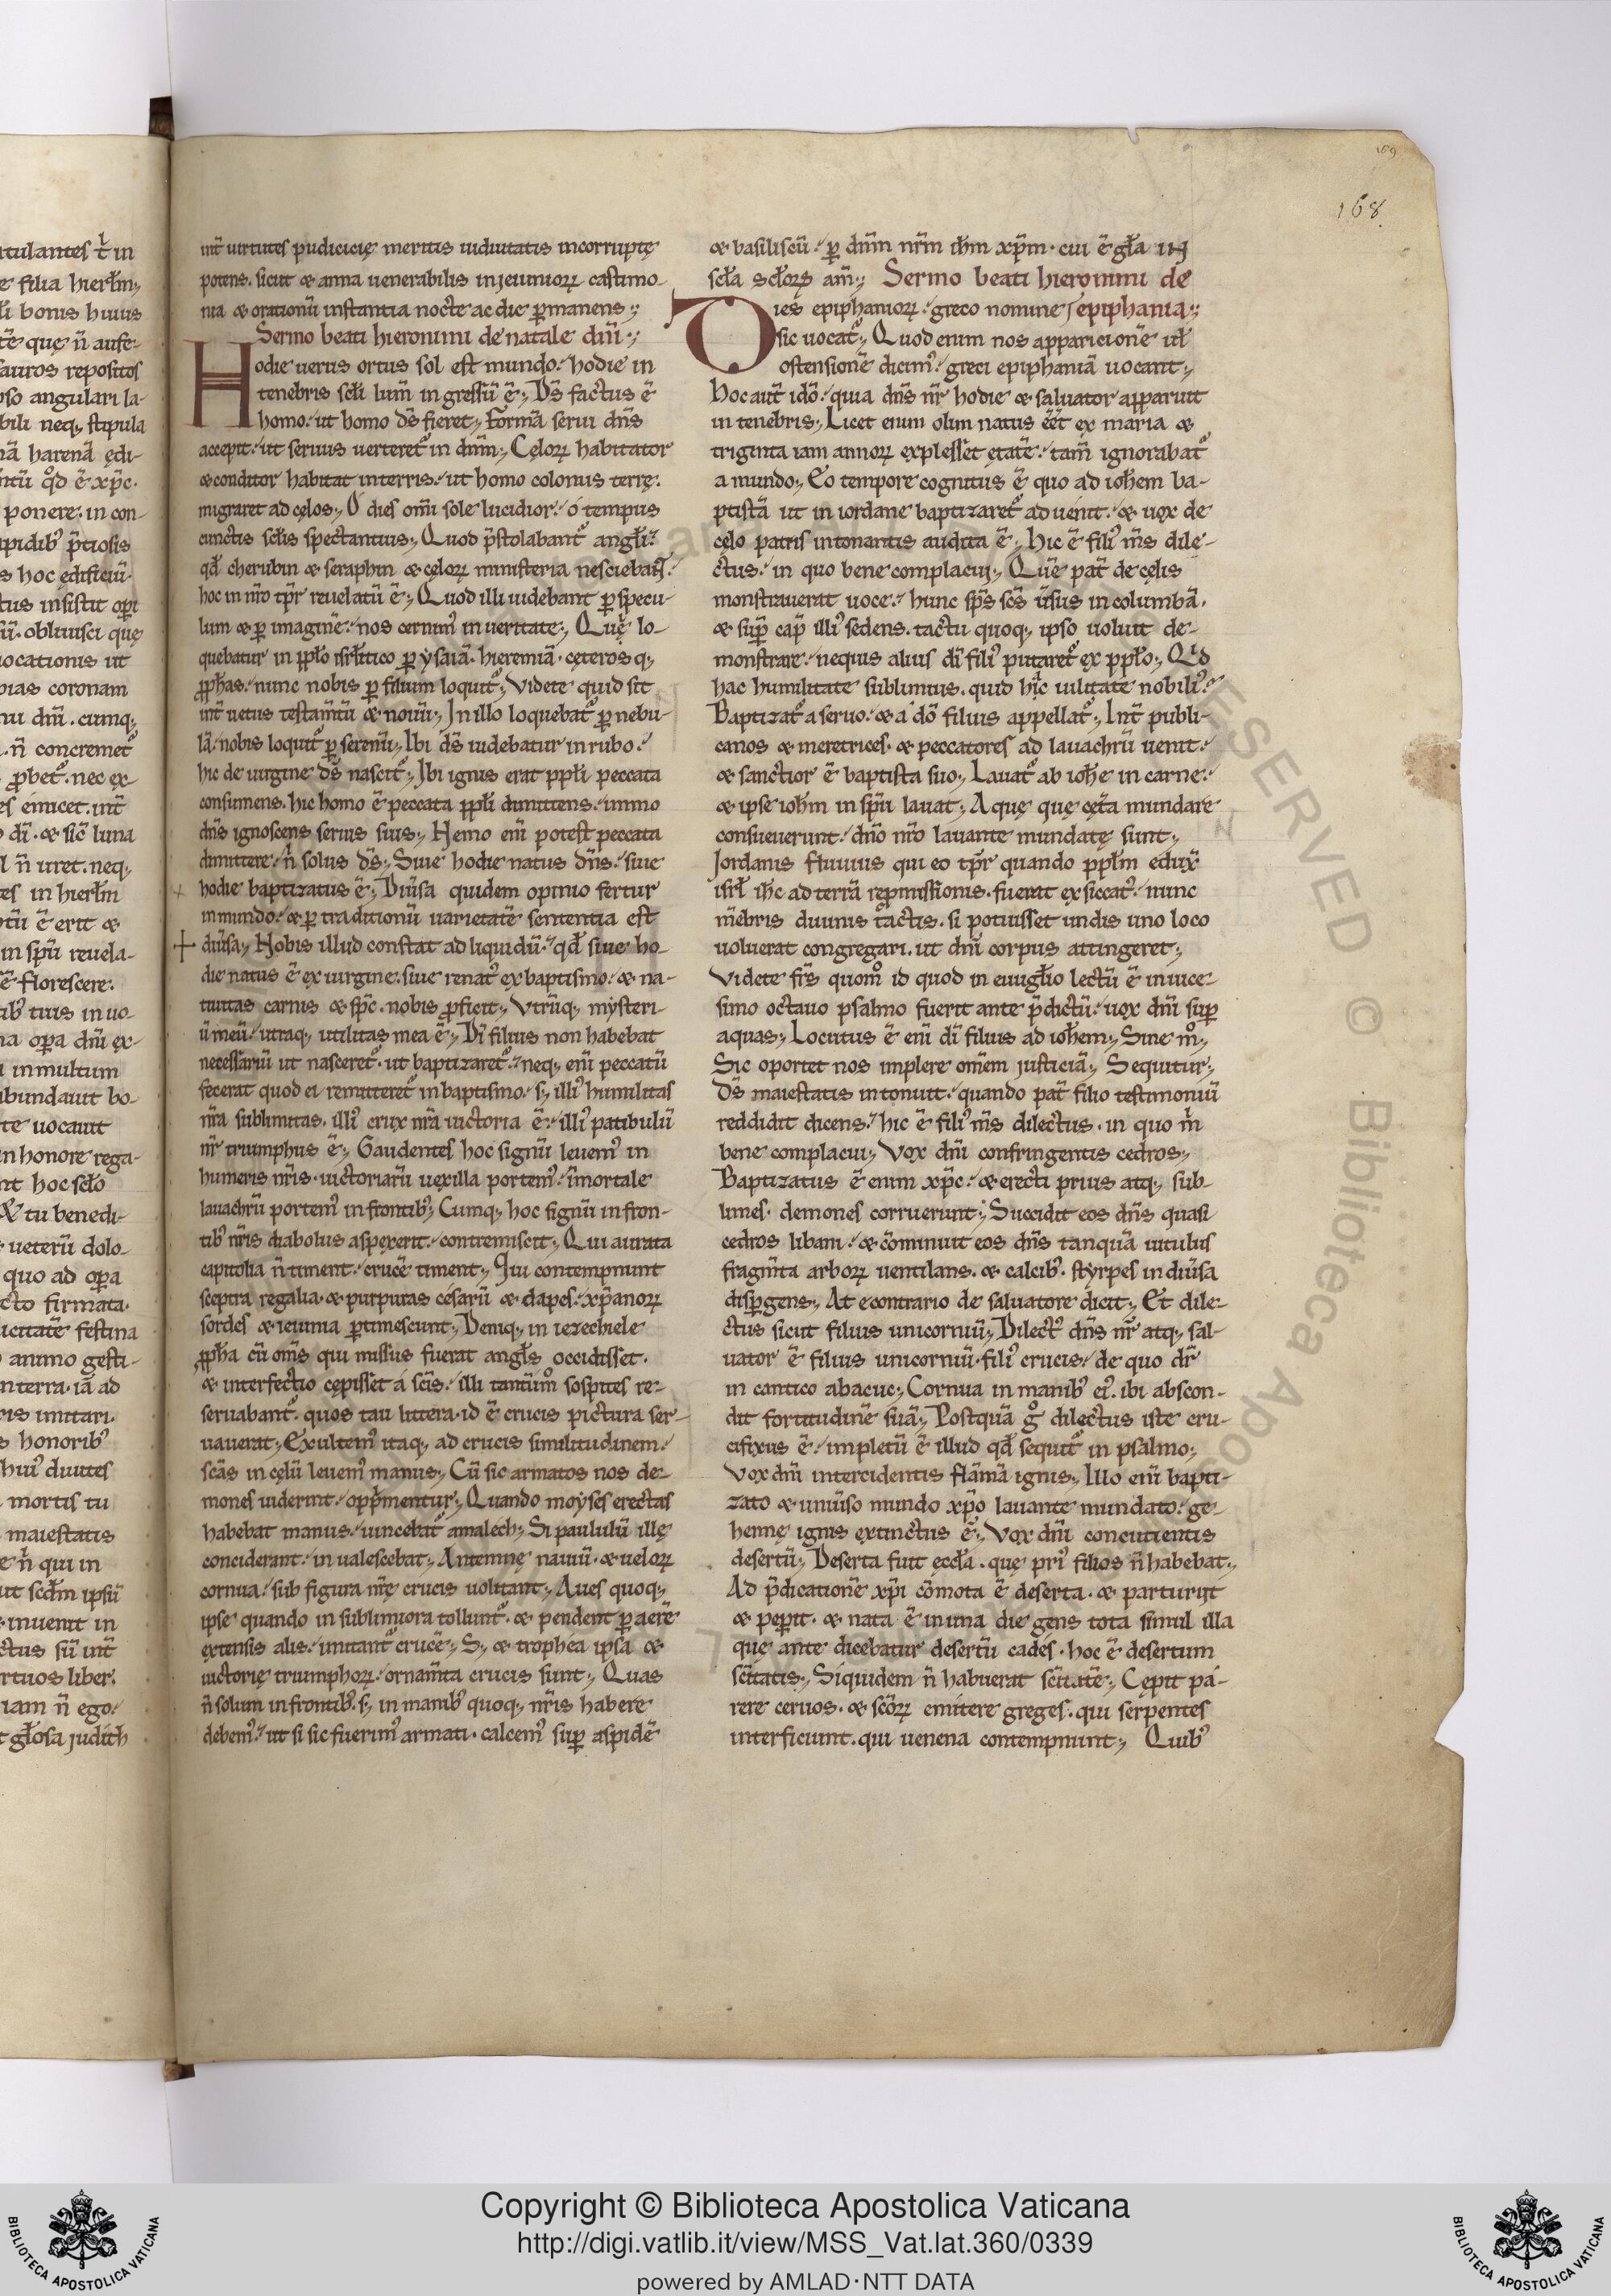 169
168
int̃ uirtutes pudicicię meritis uiduitatis incorruptę
potens. sicut & anna uenerabilis in jeiunioꝝ castimo-
nia & orationũ instantia nocte ac die ꝑmanens;
Sermo beati hieronimi de natale dñi;
Hodie uerus ortus sol est mundo. hodie in
tenebris scƚi lum̃ in gressũ ẽ; Dš factus ẽ
homo. ut homo dš fieret; Formã serui dñs
accepit. ut seruus uerteret᷑ in dnm̃; Cęloꝝ habitator
& conditor habitat in terris. ut homo colonus terrę.
migraret ad cęlos; O dies omĩ sole lucidior. ó tempus
cunctis scƚis spectantius; Quod p̃stolabant᷑ angƚi.
qđ cherubin & seraphin & cęloꝝ ministeria nesciebant.
hoc in nr̃o tp̃r reuelatũ ẽ; Quod illi uidebant ꝑ specu-
lum & ꝑ imaginẽ. nos cernimꝰ in ueritate; Qui lo-
quebatur in ppƚo isrƚitico ꝑ ysaiã. hieremiã. ceteros q;
ꝓphas. nunc nobis ꝑ filium loquit᷑; Videte quid sit
int̃ uetus testam̃tũ & nouũ; In illo loquebat᷑ ꝑ nebu-
lã. nobis loquit᷑ ꝑ serenũ; Ibi dš uidebatur in rubo.
hic de uirgine dš nascit᷑; Ibi ignis erat ppƚi peccata
consumens. hic homo ẽ peccata ppƚi dimittens. immo
dñs ignoscens seruis suis; Nemo enĩ potest peccata
dimittere. ñ solus dš; Siue hodie natus dñs. siue
hodie baptizatus ẽ; Diũsa quidem opinio fertur
in mundo. & ꝑ traditionũ uarietatẽ sententia est
diũsa; Nobis illud constat ad liquidũ. qđ siue ho-
die natus ẽ ex uirgine. siue renatꝰ ex baptismo. & na-
tiuitas carnis & sp̃c. nobis ꝓficit; Vtrũq; mysteri-
ũ meũ. utraq; utilitas mea ẽ; Dĩ filius non habebat
necessariũ ut nasceret᷑. ut baptizaret᷑. neq; enĩ peccatũ
fecerat quod ei remitteret᷑ in baptismo. s; illiꝰ humilitas
nr̃a sublimitas. illiꝰ crux nr̃a uictoria ẽ. illiꝰ patibulũ
nr̃ triumphus ẽ; Gaudentes hoc signũ leuemꝰ in
humeris nr̃is. uictoriarũ uexilla portemꝰ. ĩmortale
lauachrũ portemꝰ in frontibꝰ; Cumq; hoc signũ in fron-
tibꝰ nr̃is diabolus aspexerit. contremiscit; Qui aurata
capitolia ñ timent. crucẽ timent; Qui contempnunt
sceptra regalia. & purpuras césarũ & dapes. xp̃anoꝝ
sordes & ieiunia ꝑtimescunt; Deniq; in iezechiele
ꝓpha cũ om̃s qui missus fuerat angƚs occidisset.
& interfectio cępisset á scĩs. illi tantũmͦ sospites re-
seruabant᷑. quos tau littera. id ẽ crucis pictura ser-
uauerat; Exultemꝰ itaq; ad crucis similitudinem.
scãs in cęlũ leuemꝰ manus; Cũ sic armatos nos de-
mones uiderint. opprimentur; Quando moyses erectas
habebat manus. uincebat᷑ amalech; Si paululũ illę
conciderant. in ualescebat; Antemnę nauiũ. & ueloꝝ
cornua. sub figura nr̃ę crucis uolitant; Aues quoq;
ipse quando in sublimiora tollunt᷑. & pendent ꝑ aerẽ
extensis alis. imitant᷑ crucẽ; S; & trophéa ipsa &
uictorię triumphoꝝ. ornam̃ta crucis sunt; Quas
ñ solum in frontibꝰ. s; in manibꝰ quoq; nr̃is habere
debemꝰ. ut si sic fuerimꝰ armati. calcemꝰ suꝑ aspidẽ
& basiliscũ. ꝑ dnm̃ nrm̃ ihm̃ xp̃m. cui ẽ gƚa IN
scƚa scƚoꝝ am̃; Sermo beati hieronimi de
Dies epiphanioꝝ. greco nomine epiphania;
sic uocat᷑; Quod enim nos apparicionẽ uƚ
ostensionẽ dicimꝰ. greci epiphaniã uocant;
hoc aut̃ idõ. quia dñs nr̃ hodie & saluator apparuit
in tenebris; Licet enim olim natus eẽt ex maria &
triginta iam annoꝝ explesset ętatẽ. tam̃ ignorabat᷑
a mundo; Eo tempore cognitus ẽ quo ad ioħem ba-
ptistã ut in iordane baptizaret᷑ ad uénit. & uox de
cęlo patris intonantis audita ẽ; hic ẽ filiꝰ m̃s dile-
ctus. in quo bene complacui; Quẽ pat̃ de cęlis
monstrauerat uoce. hunc sp̃s scš ũsus in columbã.
& suꝑ cap̃ illiꝰ sedens. tactu quoq; ipso uoluit de-
monstrare. nequis alius dĩ filiꝰ putaret᷑ ex ppƚo; Qd
hac humilitate sublimius. quid hac uilitate nobiliꝰ.
Baptizat᷑ a seruo. & a dõ filius appellat᷑; Int̃ publi-
canos & meretrices. & peccatores ad lauachrũ uenit.
& sanctior ẽ baptista suo; Lauat᷑ ab ioħe in carne.
& ipse ioħm in sp̃u lauat; Aquę que cęt̃a mundare
consueuerunt. dño nr̃o lauante mundatę sunt;
Jordanis fluuius qui eo tp̃r quando ppƚm edux̃
isrƚ iħc ad terrã reꝓmissionis. fuerat ex siccatꝰ. nunc
m̃ebris diuinis tactis. si potuisset undis uno loco
uoluerat congregari. ut dñi corpus attingeret;
Videte fr̃s quomͦ id quod in euuigƚio lectũ ẽ in uice-
simo octauo psalmo fuerit ante p̃dictũ. uox dñi suꝑ
aquas; Locutus ẽ enĩ dĩ filius ad ioħem; Sine mͦ;
Sic oportet nos implere om̃em justiciã; Sequitur;
Dš maiestatis intonuit. quando pat̃ filio testimoniũ
reddidit dicens. hic ẽ filiꝰ m̃s dilectus. in quo m̃
bene complacui; Vox dñi confringentis cedros;
Baptizatus ẽ enim xp̃c. & erecti prius atq; sub-
limes. demones corruerunt; Succidit eos dñs quasi
cedros libani. & cõminuit eos dñs tanquã uitulus
fragm̃ta arboꝝ uentilans. & calcibꝰ. styrpes in diũsa
disꝑgens; At econtrario de saluatore dicit; Et dile-
ctus sicut filius unicorniũ; Dilectꝰ dñs nr̃ atq; sal-
uator ẽ filius unicorniũ. filiꝰ crucis. de quo dr̃
in cantico abacuc; Cornua in manibꝰ eiꝰ. ibi abscon-
dit fortitudinẽ suã; Postquã gͦ dilectus iste cru-
cifixus ẽ. impletũ ẽ illud qđ sequit᷑ in psalmo;
Vox dñi intercidentis flãmã ignis; Illo enĩ bapti-
zato & uniũso mundo xp̃o lauante mundato. ge-
hennę ignis extinctus ẽ; Vox dñi concutientis
desertũ; Deserta fuit ęccƚa. que priꝰ filios ñ habebat;
Ad p̃dicationẽ xp̃i cõmota ẽ deserta. & parturiit
& peꝑit. & nata ẽ in una die gens tota simul illa
que ante dicebatur desertũ cades. hoc ẽ desertum
scĩtatis; Siquidem ñ habuerat scĩtatẽ; Cępit pá-
rere ceruos. & scõꝝ emittere greges. qui serpentes
interficiunt. qui uenena contempnunt; Quibꝰ
Copyright © Biblioteca Apostolica Vaticana
http://digi.vatlib.it/view/MSS_Vat.lat.360/0339
powered by AMLAD·NTT DATA
BIBLIOTECA APOSTOLICA VATICANA
BIBLIOTECA APOSTOLICA VATICANA